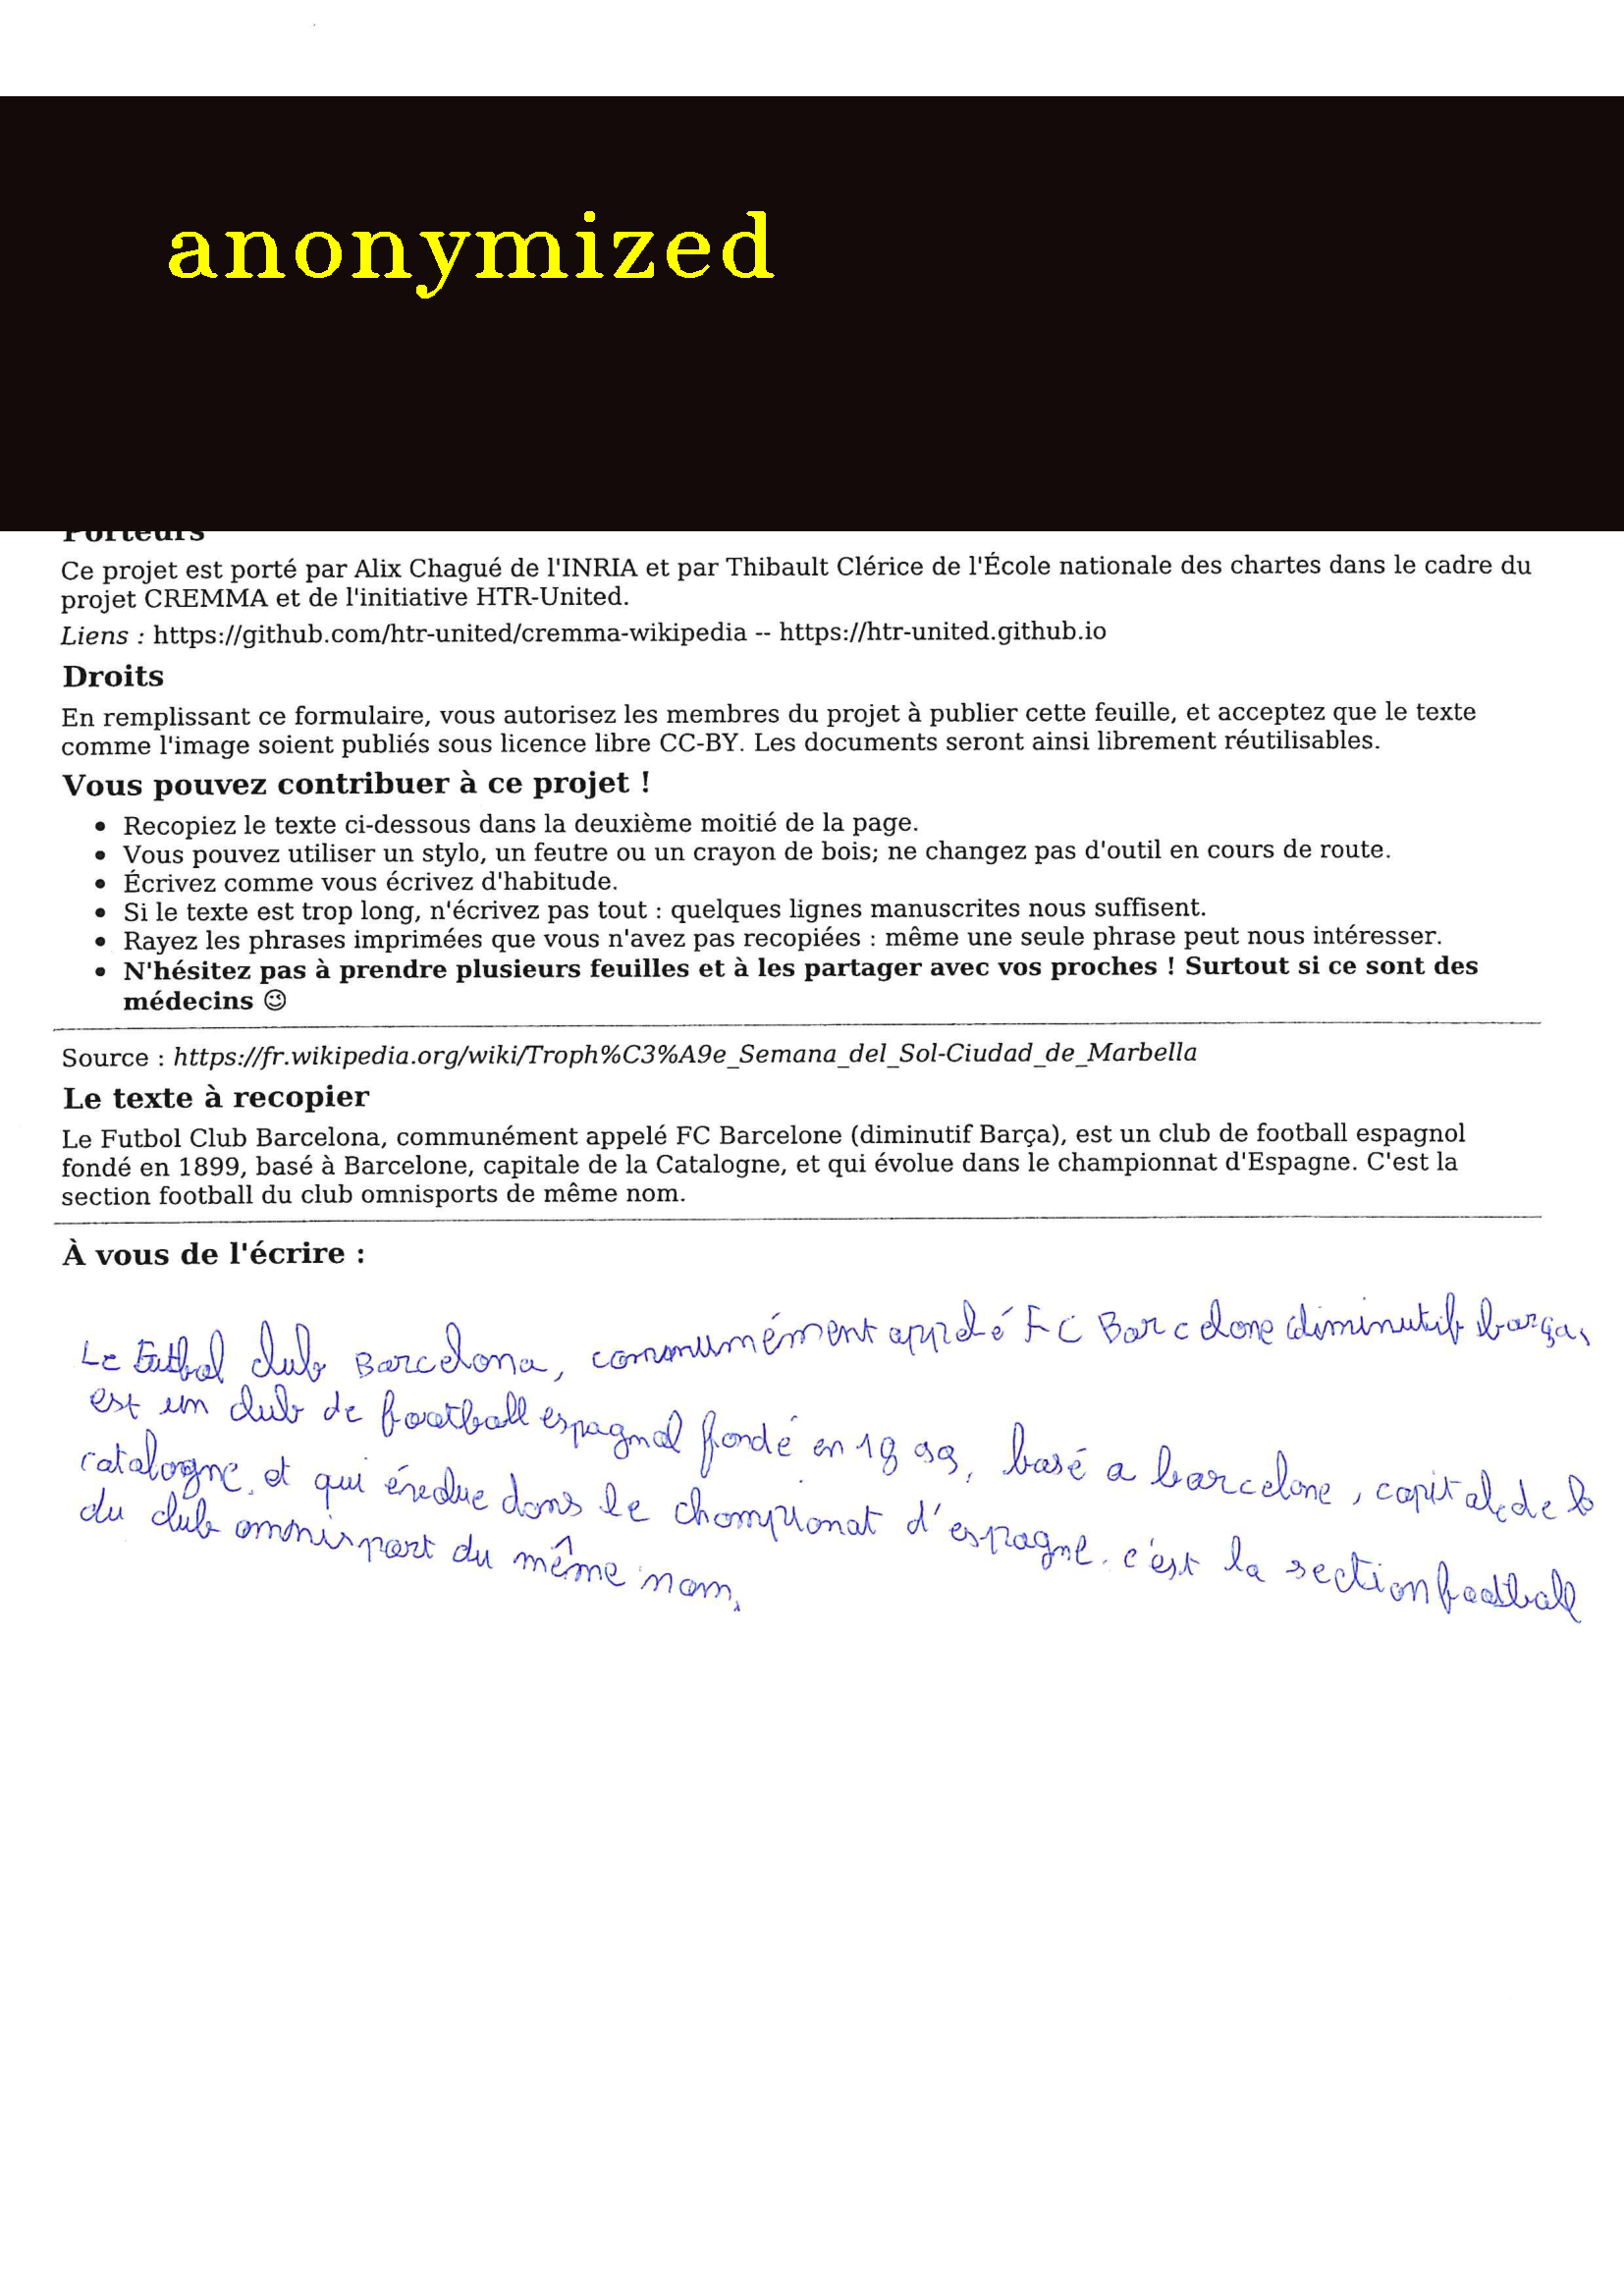 anonymized
Porteurs
Ce projet est porté par Alix Chagué de l'INRIA et par Thibault Clérice de l'École nationale des chartes dans le cadre du
projet CREMMA et de l'initiative HTR-United.
Liens : https://github.com/htr-united/cremma-wikipedia -- https://htr-united.github.io
Droits
En remplissant ce formulaire, vous autorisez les membres du projet à publier cette feuille, et acceptez que le texte
comme l'image soient publiés sous licence libre CC-BY. Les documents seront ainsi librement réutilisables.
Vous pouvez contribuer à ce projet !
• Recopiez le texte ci-dessous dans la deuxième moitié de la page.
• Vous pouvez utiliser un stylo, un feutre ou un crayon de bois; ne changez pas d'outil en cours de route.
• Écrivez comme vous écrivez d'habitude.
• Si le texte est trop long, n'écrivez pas tout : quelques lignes manuscrites nous suffisent.
• Rayez les phrases imprimées que vous n'avez pas recopiées : même une seule phrase peut nous intéresser.
• N'hésitez pas à prendre plusieurs feuilles et à les partager avec vos proches ! Surtout si ce sont des
médecins 😉
Source : https://fr.wikipedia.org/wiki/Troph%C3%A9e_Semana_del_Sol-Ciudad_de_Marbella
Le texte à recopier
Le Futbol Club Barcelona, communément appelé FC Barcelone (diminutif Barça), est un club de football espagnol
fondé en 1899, basé à Barcelone, capitale de la Catalogne, et qui évolue dans le championnat d'Espagne. C'est la
section football du club omnisports de même nom.
À vous de l'écrire :
Le Futbol club Barcelona, communément appelé FC Barcelone (diminutif barça,
est un club de football espagnol fondé en 1899, basé a barcelone, capitale de la
catalogne, et qui évolue dans le championat d'espagne. c'est la section football
du club omnispart du même nom.